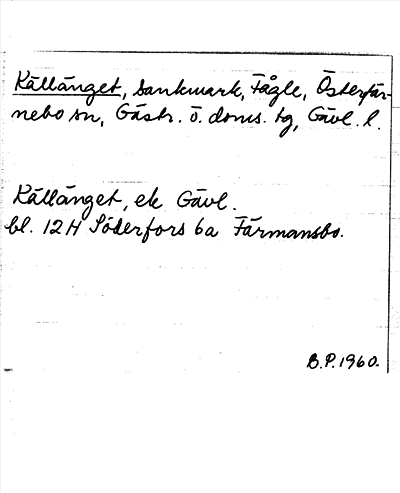 Källänget, sankmark, Fågle, Österfär-
nebo sn, Gästr. ö. doms. tg, Gävl. l.
Källänget, ek Gävl.
bl. 12H Söderfors 6a Färmansbo.
B.P. 1960.